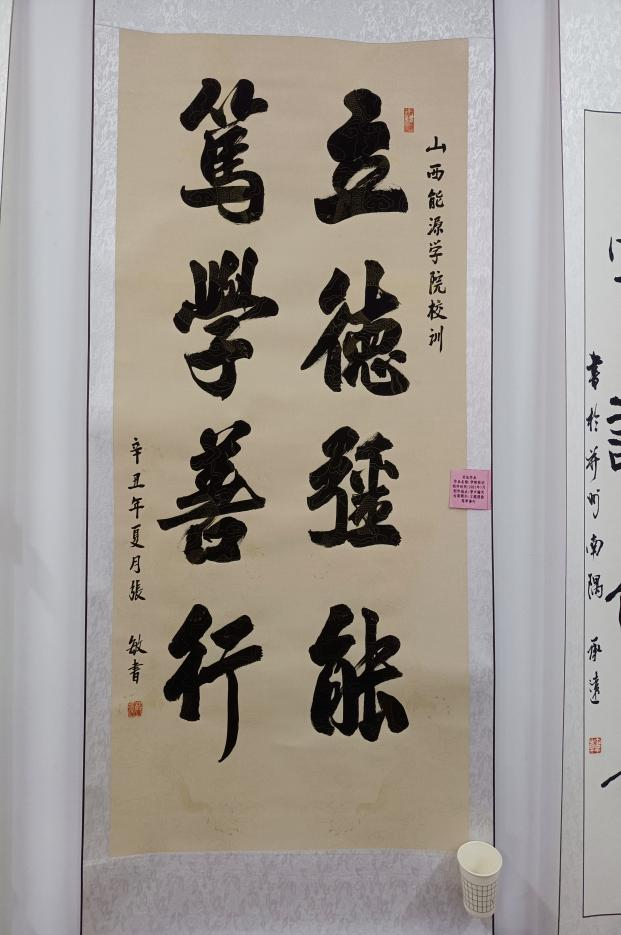 山西能源学院校训
立德彊能
篤學善行
辛丑年夏月張敏書
書於并州南隅 承遠